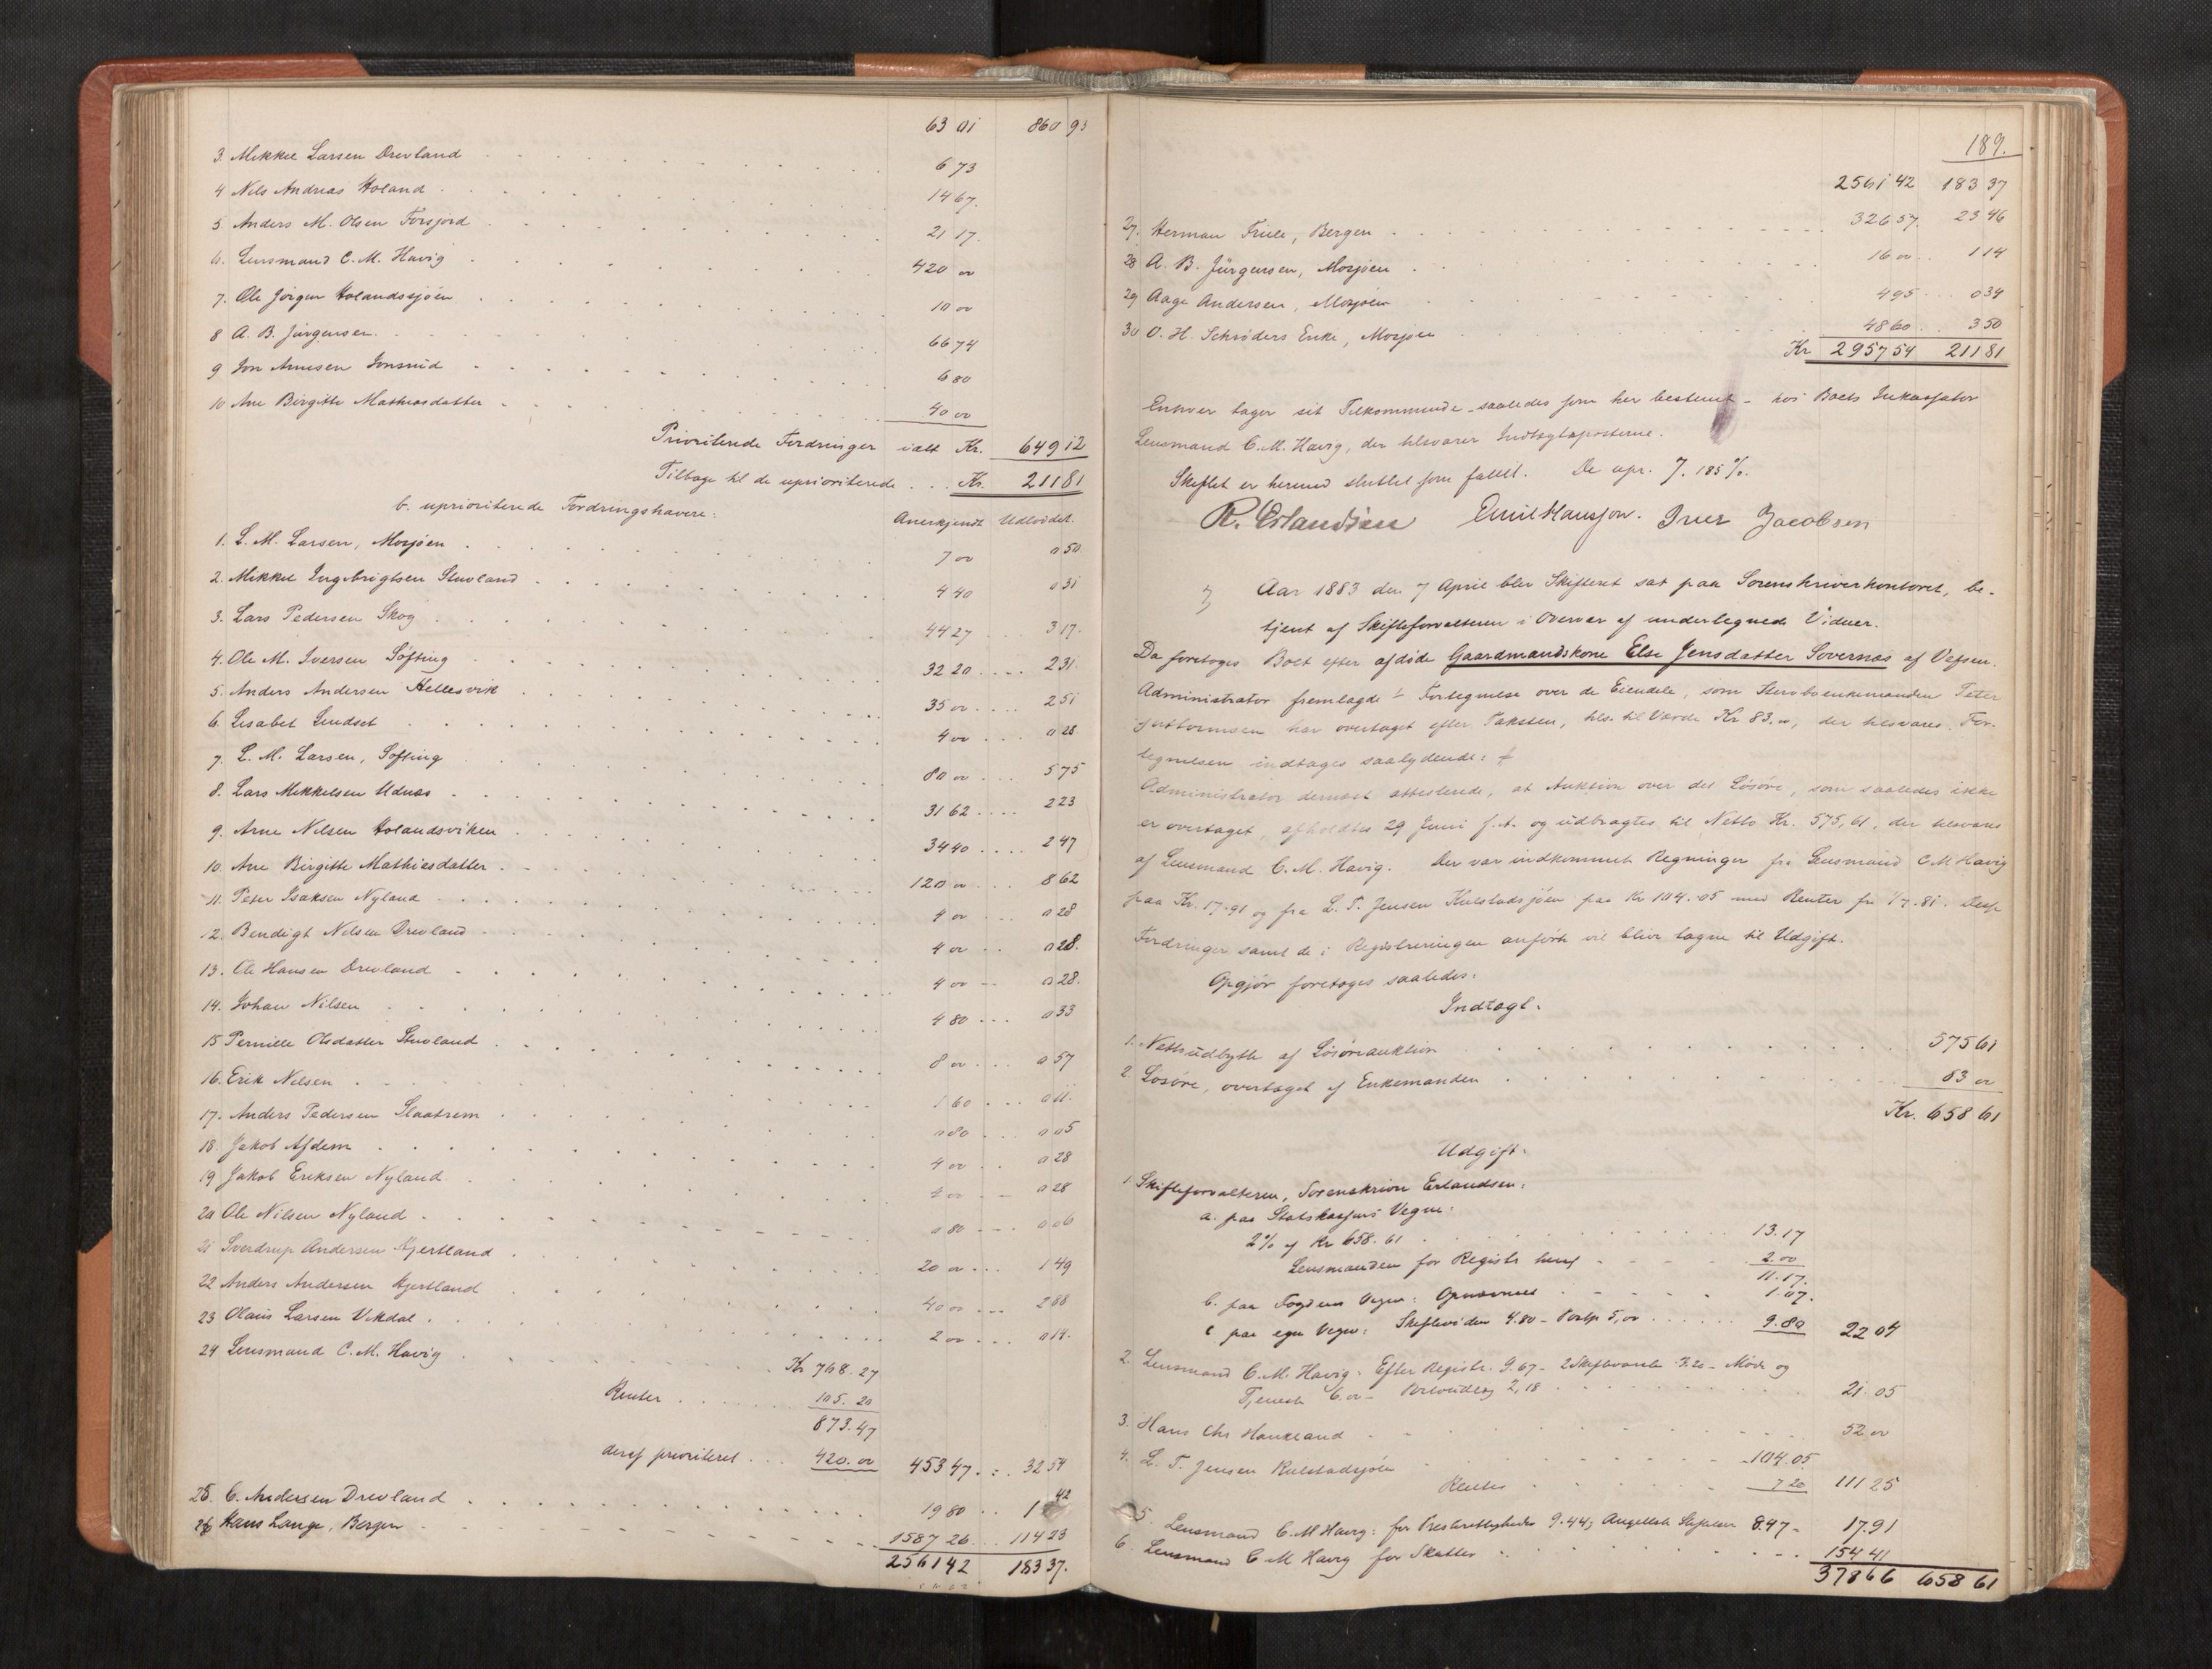 63 01 860 93
3. Mikkel Larsen Drevland 6 73
4 Nils Andreas Holand 14 67.
5. Anders M. Olsen Forsjord 21 17.
6. Lensmand C. M. Havig 420 00
7. Ole Jörgen Holandssjöen 10 00
8 A. B. Jürgensen 66 74
9 Jon Arnesen Jonsrud 6 80
10 Ane Birgitte Mathiasdatter 40 00
Prioriterede Fordringer ialt Kr. 649 12
Tilbage til de uprioriterede Kr. 211 81
b. uprioriterede Fordringshavere: Anerkjendt Udloddet.
1. L. M. Larsen, Mosjöen 7 00 0 50
2. Mikkel Ingebrigtsen Stuvland 4 40 0 31
3. Lars Pedersen Skog 44 27 3 17.
4. Ole M. Iversen Söfting 32 20 2 31.
5. Anders Andersen Hellesvik 35 00 2 51
6. Lisabet Lindset 4 00 0 28
7. L. M. Larsen, Söfting 80 00 5 75
8. Lars Mikkelsen Udnæs 31 62 2 23
9. Arne Nilsen Holandsviken 34 40 2 47
10. Ane Birgitte Mathiasdatter 120 00 8 62
11. Peter Isaksen Nyland 4 00 0 28
12. Bendigt Nilsen Drevland 4 00 0 28.
13. Ole Hansen Drevland 4 00 0 28.
14. Johan Nilsen 4 80 0 33
15 Pernille Olsdatter Stuvland 8 00 0 57
16. Erik Nilsen 1 60 0 11.
17. Anders Pedersen Slaatrem 0 80 0 05
18. Jakob Afdem 4 00 0 28
19 Jakob Eriksen Nyland 4 00 0 28
20 Ole Nilsen Nyland 0 80 0 06
21 Sverdrup Andersen Hjertland 20 00 1 49
22 Anders Andersen Hjertland 40 00 2 88
23 Olaus Larsen Vikdal 2 00 0 14.
24 Lensmand C. M. Havig Kr 768.27
Renter 105.20
873.47
deraf prioriteret 420.00 453 47 32 54
25. C. Andersen Drevland 19 80 1 42
26 Hans Lange, Bergen 1587 26 114 23
2561 42 183 37.
189.
2561 42 183 37
27. Herman Friele, Bergen 326 57 23 46
28 A. B. Jürgensen, Mosjöen 16 00 1 14
29 Aage Andersen, Mosjöen 4 95 0 34
30 O. H. Schröders Enke, Mosjöen 48 60 3 50
Kr 2957 54 211 81
Enhver tager sit Tilkommende saaledes som her bestemt - hos Boets Inkassator
Lensmand C. M. Havig, der tilsvarer Indtægtsposterne.
Skiftet er hermed sluttet som fallit. De upr. 7.185 %.
R. Erlandsen Emil Hansson. Iver Jacobsen
Aar 1883 den 7 April blev Skifteret sat paa Sorenskriverkontoret, be-
tjent af Skifteforvalteren i Overvær af undertegnede Vidner.
Da foretoges Boet efter afdöde Gaardmandskone Else Jensdatter Sovernæs af Vefsen.
Administrator fremlagde Fortegnelse over de Eiendele, som Stervboenkemanden Peter
har overtaget efter Taksten, tils. til Værdi Kr 83.00, der tilsvares. For-
tegnelsen indtages saalydende:
Administrator dernæst attesterede, at Auktion over det Lösöre, som saaledes ikke
er overtaget, afholdtes 29 Juni f. A. og udbragtes til Netto Kr. 575,61, der tilsvares
af Lensmand C. M. Havig. Der var indkommet Regninger fra Lensmand C M Havig
paa Kr. 17.91 og fra L. T. Jensen Kulstadsjöen paa Kr 104.05 med Renter fra 1/7.81. Disse
Fordringer samt de i Registreringen anförte vil blive tagne til Udgift.
Opgjör foretoges saaledes:
Indtægt.
1. Nettoudbytte af Lösöreauktion 575 61
2. Lösöre, overtaget af Enkemanden 83 00
Kr. 658 61
Udgift.
1. Skifteforvalteren, Sorenskriver Erlandsen:
a. paa Statskassens Vegne:
2% af Kr 658.61 13.17
Lensmanden for Registr. 2.00
11.17.
b. paa Fogdens Vegne: 1.07.
c. paa egne Vegne: Skiftevidner 4.80 - Porto 5,00 9.80 22 04
2. Lensmand C. M. Havig: Efter Registr. 9.67 - 2 Skiftevarsler 3.20 - Möde og
Tjeneste 6.00 - 2,18 21 05
3. Hans Chr Haukland 52 00
4. L. T. Jensen Kulstadsjöen 104.05
Renter 7 20 111 25
5. Lensmand C. M Havig: for Presterettigheder 9.44, 8.47 - 17.91
6. Lensmand C M Havig for Skatter 154 41
378 66 658 61